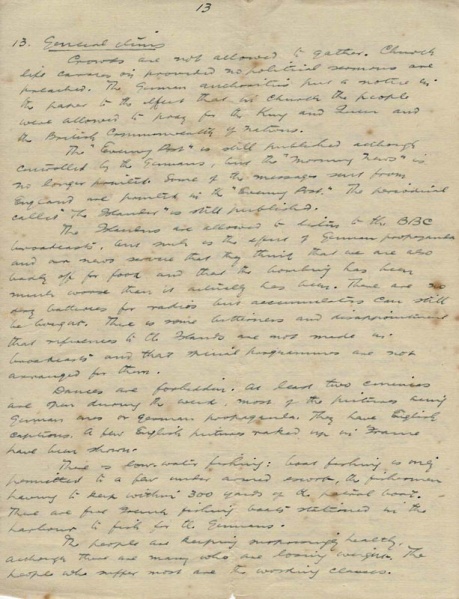 13
13. General
Crowds are not allowed to gather. Church
life carries on provided no political sermons are
preached. The German authorities put a notice in
the paper to the effect that in church the people
were allowed to pray for the King and Queen and
the British Commonwealth of Nations.
The "Evening Post" is still published although
controlled by the Germans, but the "Morning News" is
no longer printed. Some of the messages sent from
England are printed in the "Evening Post." The periodical
called "The Islander" is still published.
The Islanders are allowed to listen to the BBC
broadcasts, and such is the effect of German propaganda
and our news service that they think that we are also
badly off for food and that the bombing has been
much worse than it actually has been. There are no
dry batteries for radios but accumulators can still
be bought. There is some bitterness and disappointment
that references to the Islands are not made in
broadcasts and that special programmes are not
arranged for them.
Dances are forbidden. At least two cinemas
are open during the week, most of the pictures being
German ones or German propaganda. They have English
captions. A few English pictures raked up in France
have been shown.
There is low-water fishing: boat fishing is only
permitted to a few under armed escort, the fishermen
having to keep within 300 yards of the patrol boat.
There are five French fishing boats stationed in the
harbour to fish for the Germans.
The people are keeping surprisingly healthy,
although there are many who are losing weight. The
people who suffer most are the working classes.